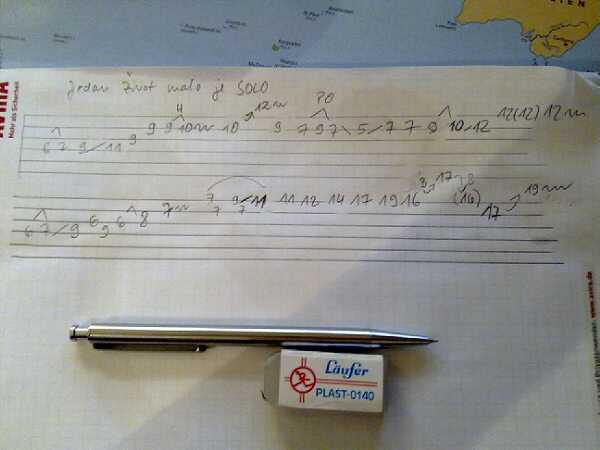 Jedan život malo je SOLO
H 12 PO 12(12) 12
6 7 9/11 9 9 9 10 10 9 7 9 7 \ 5/7 7 9 10/12
7 9/11 11 12 14 17 19 16 17 8 (16) 17 19
6 7/9 6 9 6 8 7 7 7
Läufer
PLAST-0140
AVIRA
Mehr als Sicherheit
www.avira.de